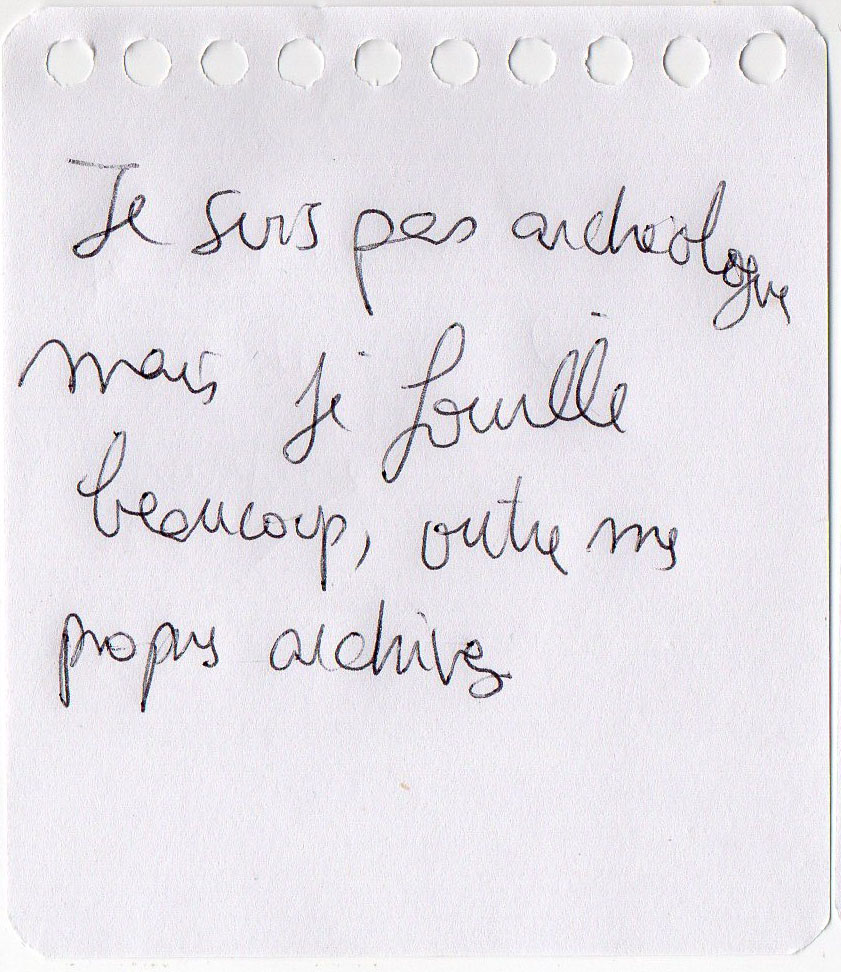 Je suis pas archéologue
mais je fouille
beaucoup, outre mes
propres archives